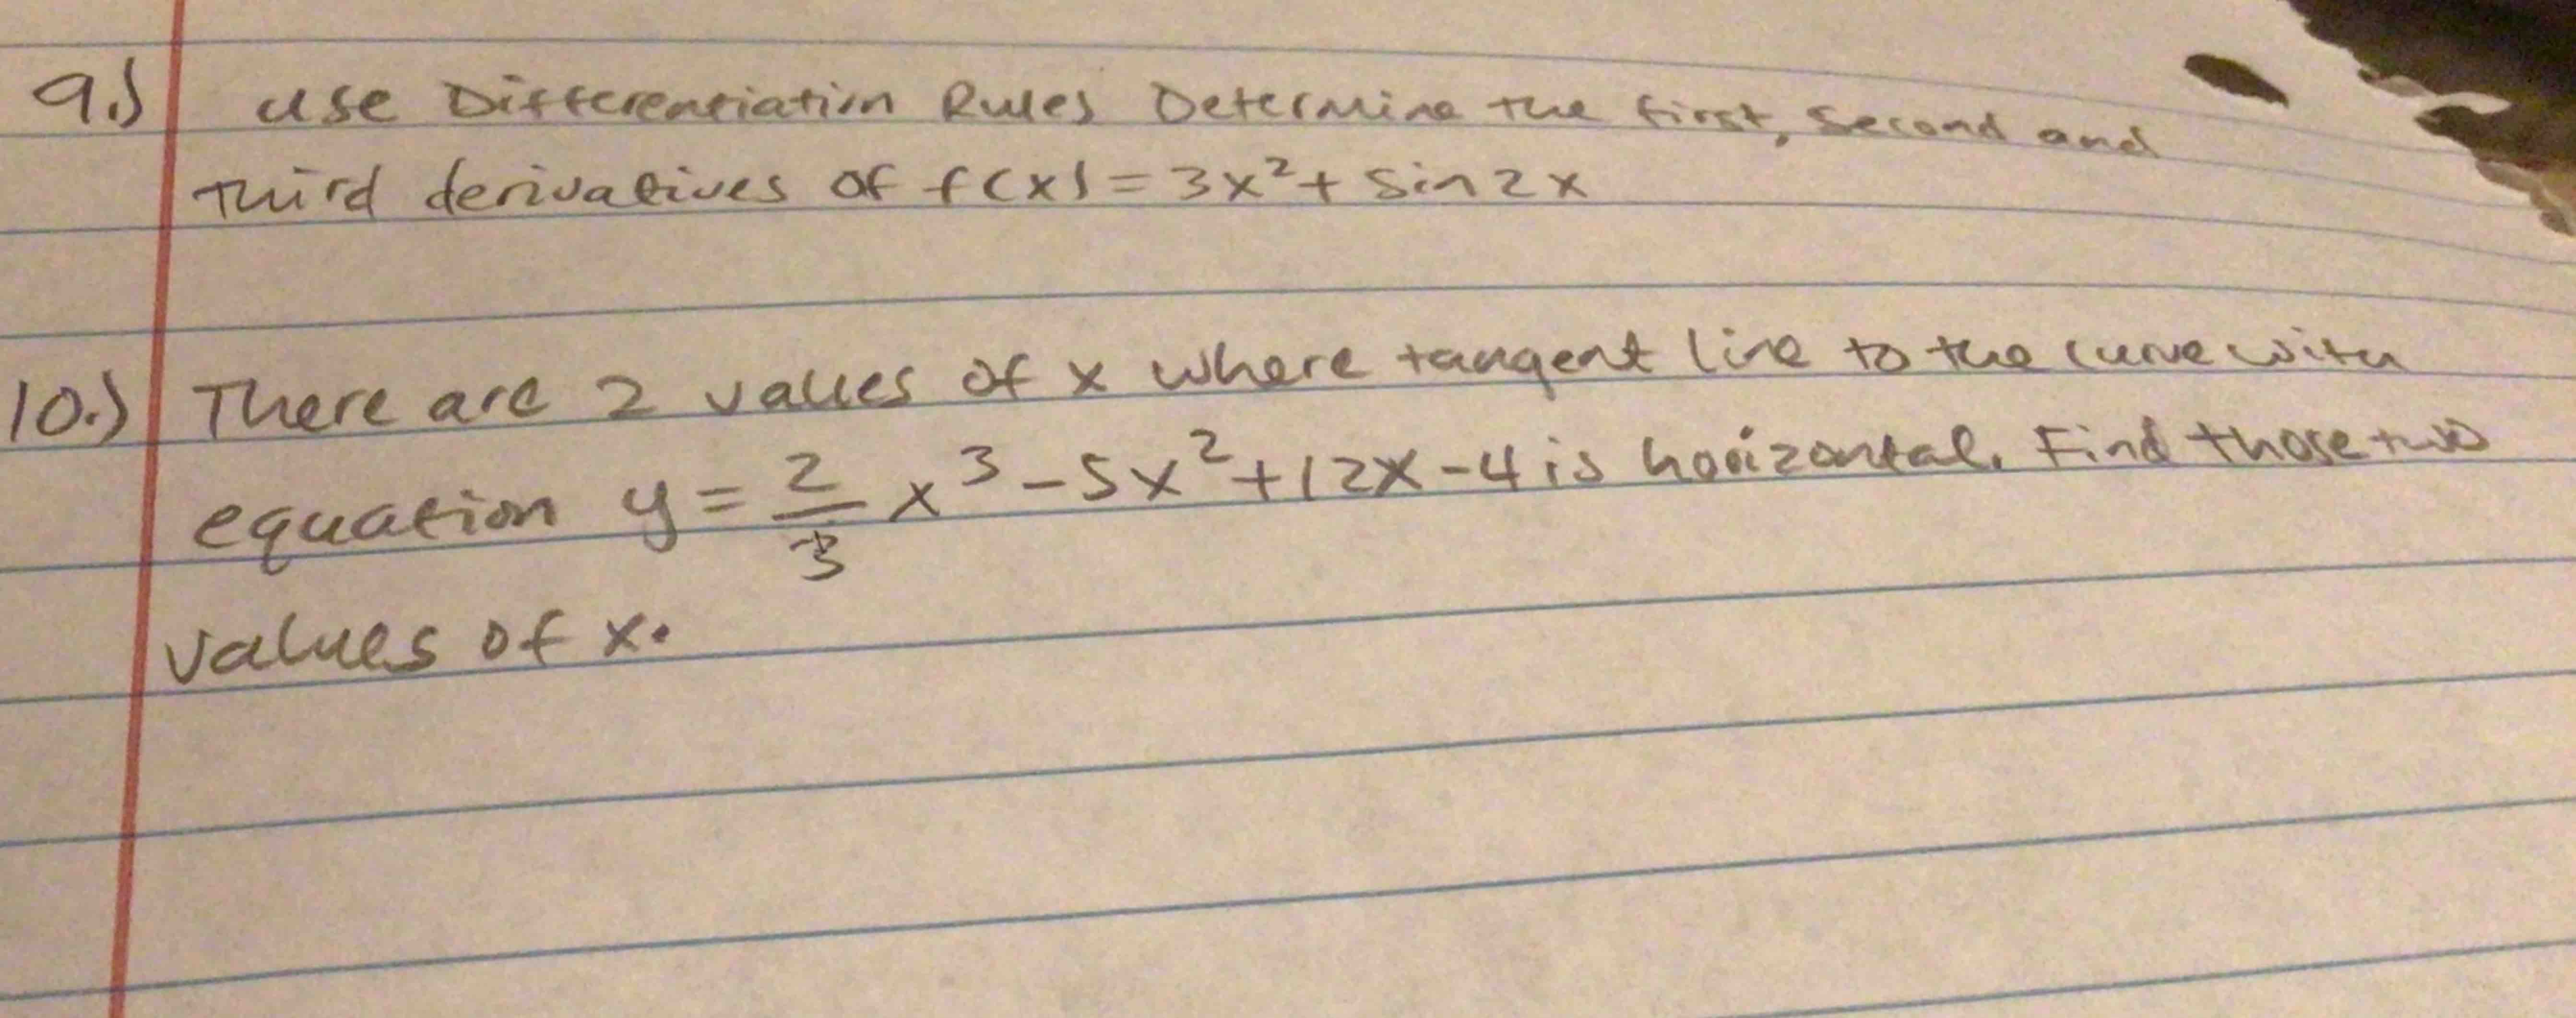 9.) use Differentiation Rules Determine the first, second and
Third derivatives of f(x) = 3x² + sin2x
10.) There are 2 values of x where tangent line to the curve with
equation y = 2/3 x³ - 5x² + 12x - 4 is horizontal. Find those two
values of x.